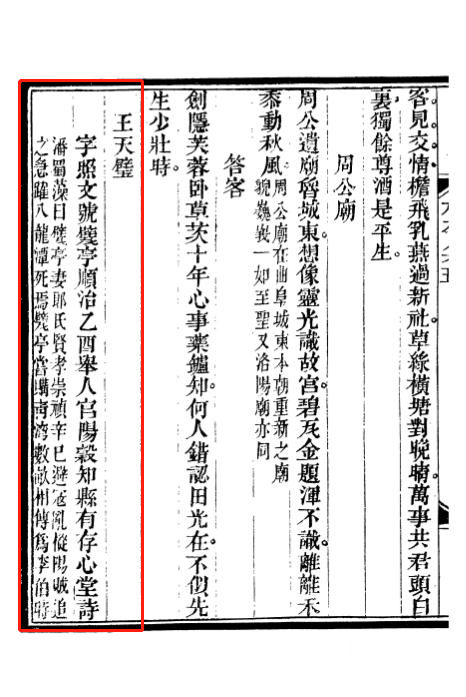 客見交情檐飛乳燕過新社草綠橫塘對晚晴萬事共君頭白
裏獨餘尊酒是平生
周公廟
周公遺廟魯城東想像靈光識故宮碧瓦金題渾不識離離禾
黍動秋風周公廟在曲阜城東本朝重新之廟
貌巍峩一如至聖又洛陽廟亦同
答客
劍隱芙蓉卧草茨十年心事藥鑪知何人錯認田光在不似先
生少壯時
王天璧
字照文號檗亭順治乙酉舉人官陽穀知縣有存心堂詩
潘蜀藻曰檗亭妻郎氏賢孝崇禎辛巳避寇亂樅陽賊追
之急躍入龍潭死焉檗亭嘗購南灣數畝相傳爲李伯時